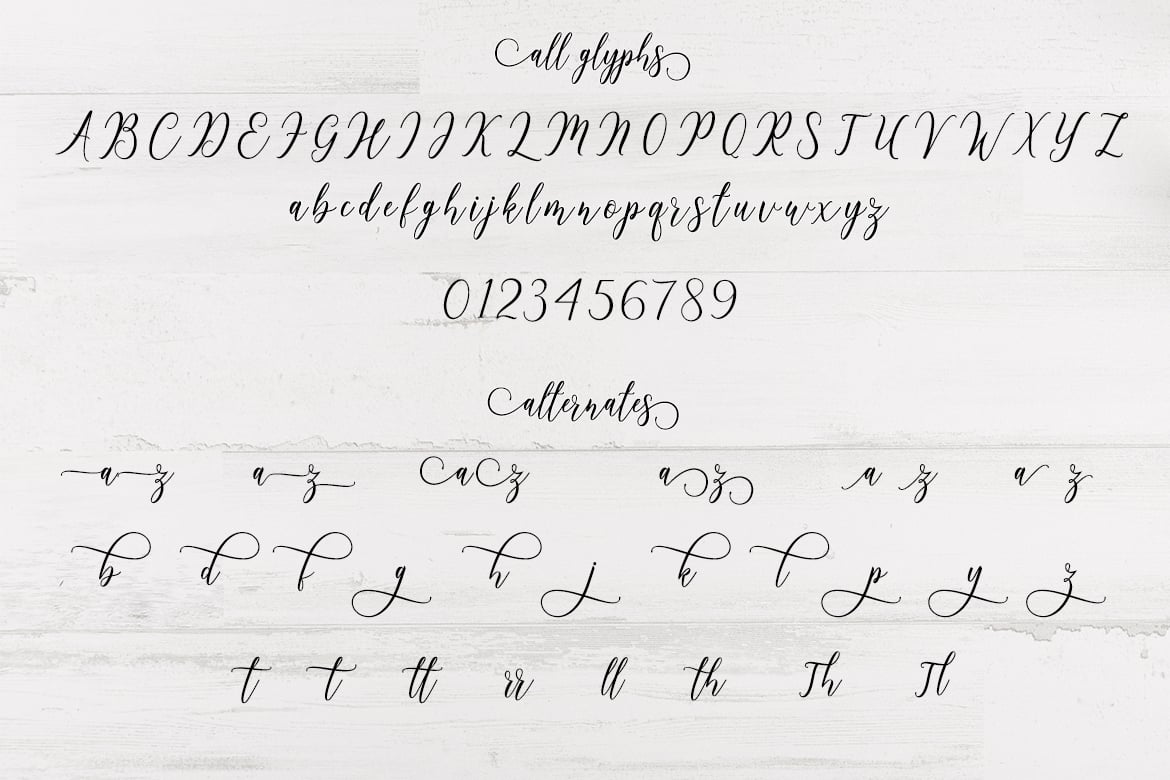 all glyphs
A B C D E F G H I J K L M N O P Q R S T U V W X Y Z
a b c d e f g h i j k l m n o p q r s t u v w x y z
0 1 2 3 4 5 6 7 8 9
alternates
a z a z a z a z a z a z
b d f g h j k l p y z
t t tt rr ll th Th Tl